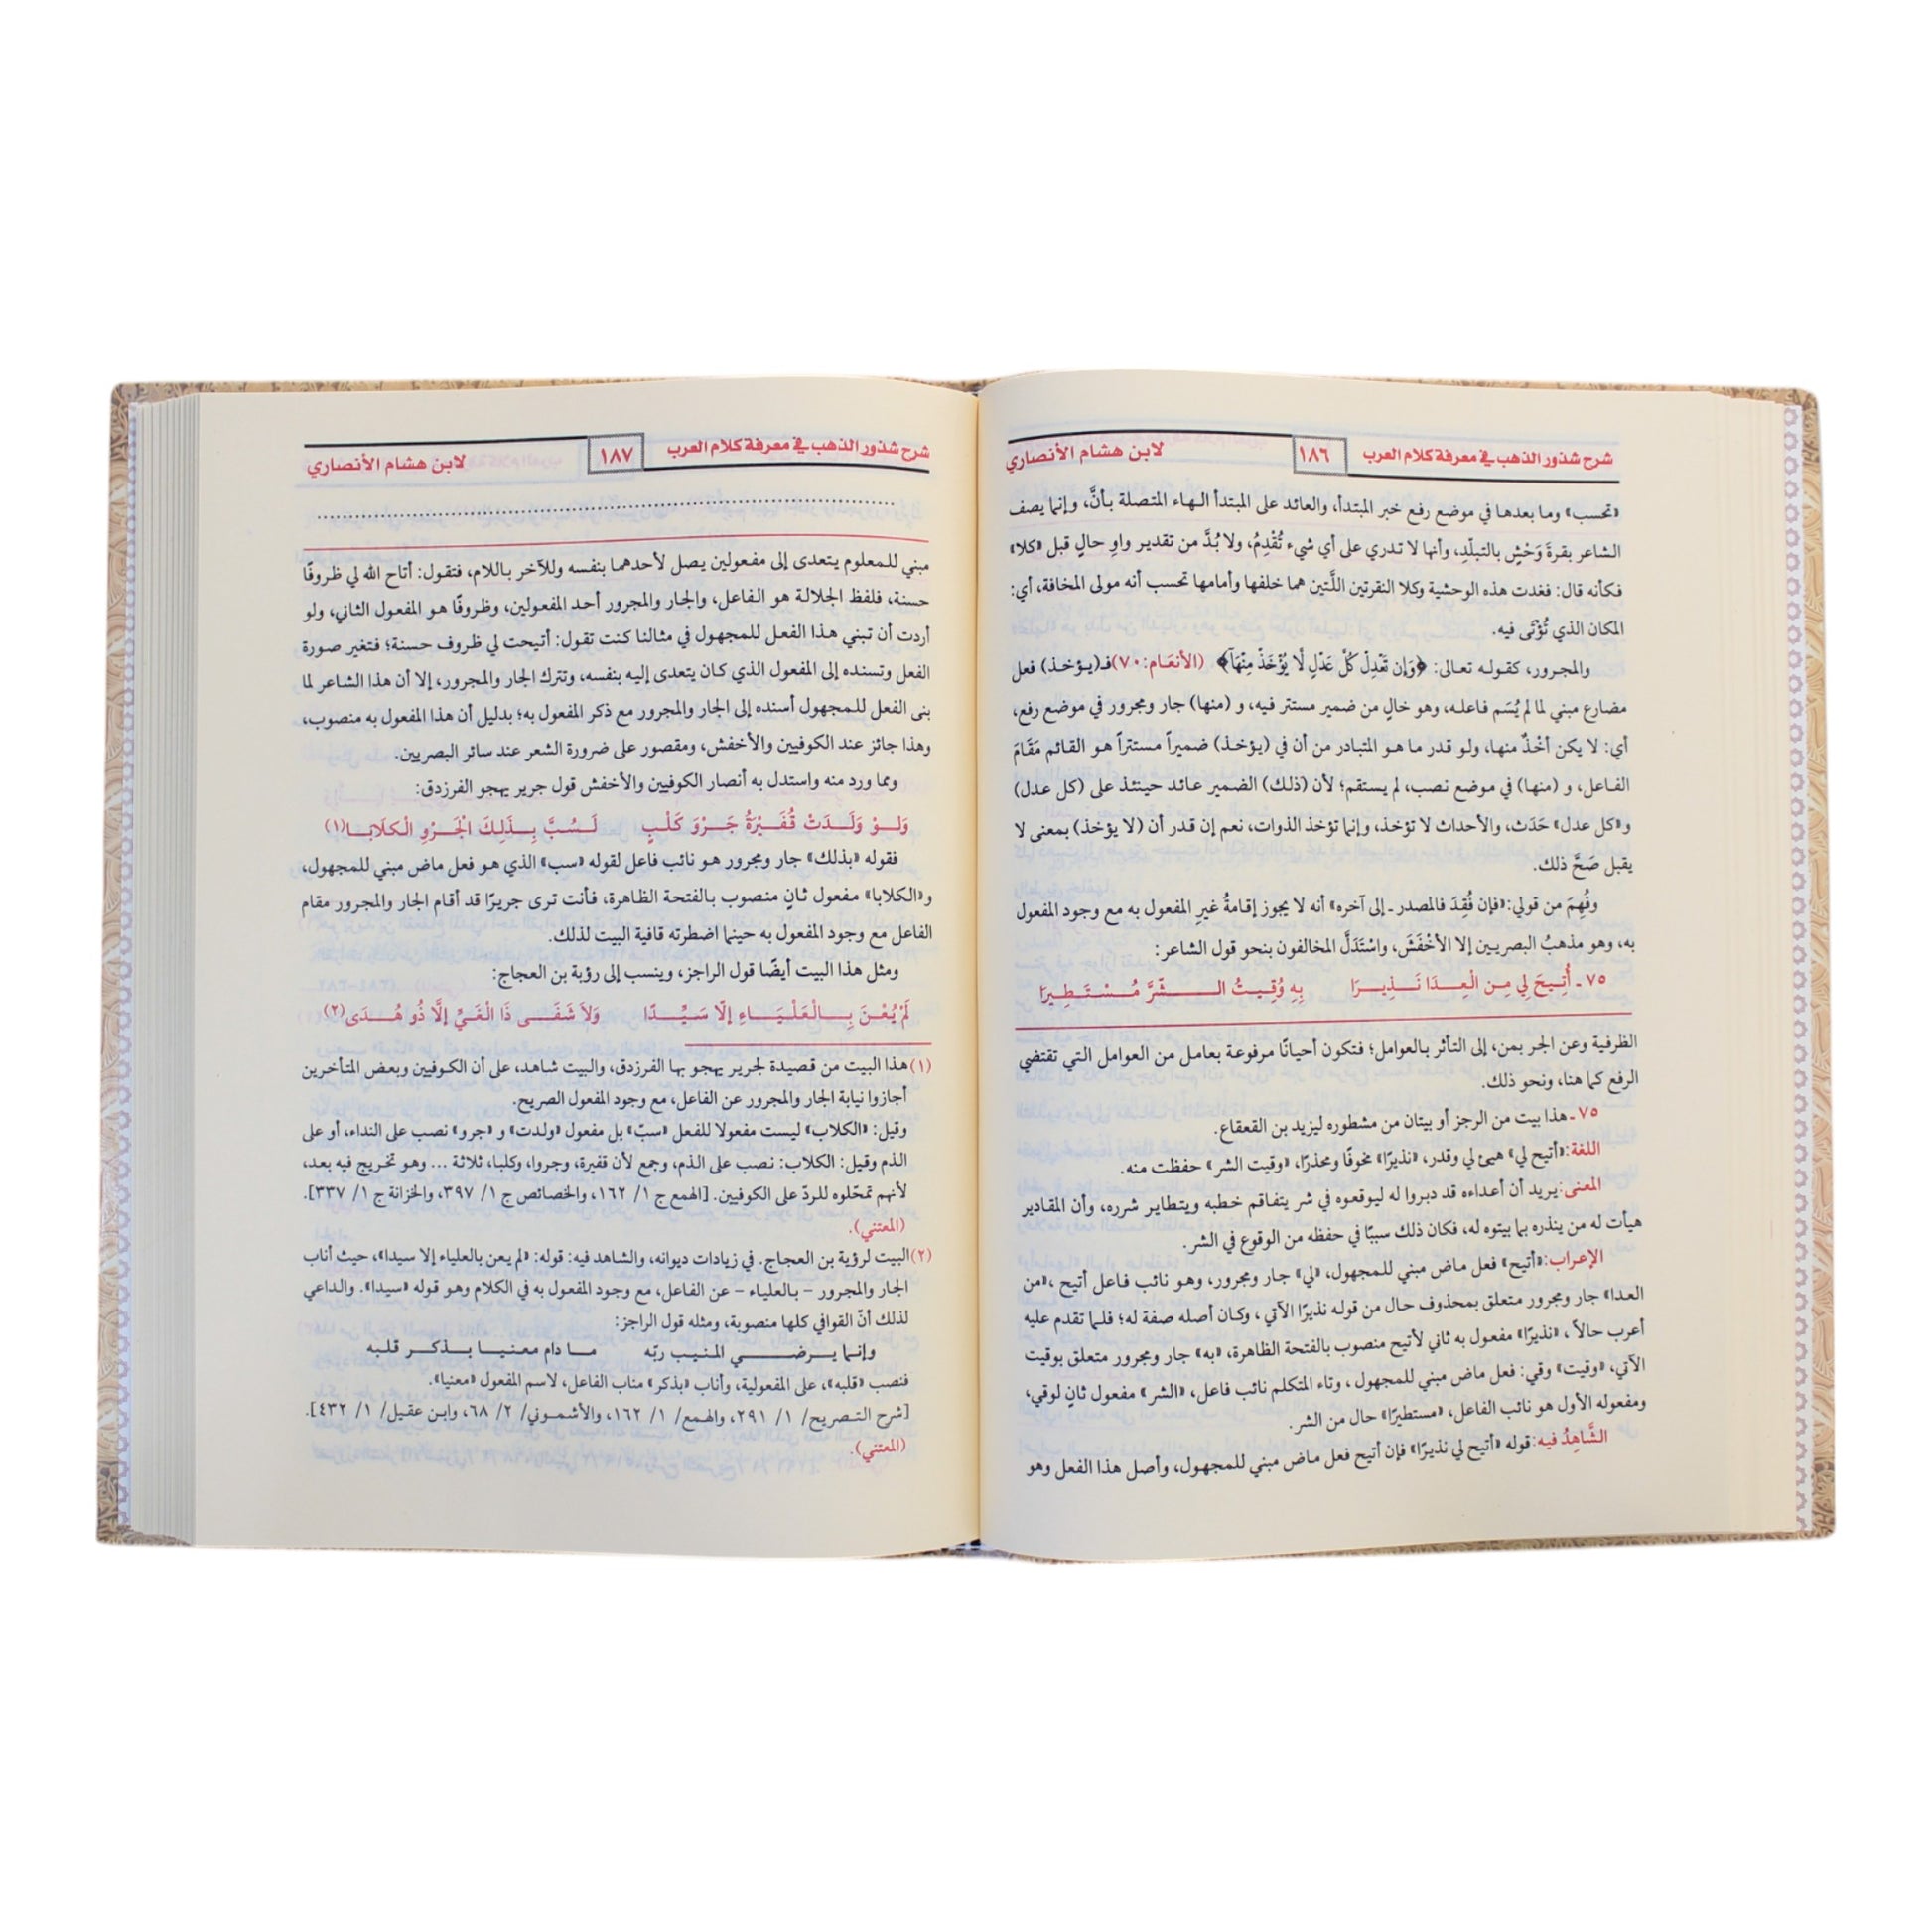 شرح شذور الذهب في معرفة كلام العرب ١٨٦ لابن هشام الأنصاري
«تحسب» وما بعدها في موضع رفع خبر المبتدأ، والعائد على المبتدأ الهاء المتصلة بأنَّ، وإنما يصف
الشاعر بقرةَ وَحْشٍ بالتبلّدِ، وأنها لا تدري على أي شيء تُقْدِمُ، ولا بُدَّ من تقدير واوِ حالٍ قبل «كلا»
فكأنه قال: فغدت هذه الوحشية وكلا النقرتين اللَّتين هما خلفها وأمامها تحسب أنه مولى المخافة، أي:
المكان الذي تُؤْتَى فيه.
والمجرور، كقوله تعالى: ﴿وَإِن تَعْدِلْ كُلَّ عَدْلٍ لَّا يُؤْخَذْ مِنْهَآ﴾ (الأنعَام:٧٠) فـ(يؤخذ) فعل
مضارع مبني لما لم يُسَم فاعله، وهو خالٍ من ضمير مستتر فيه، و (منها) جار ومجرور في موضع رفع،
أي: لا يكن أخْذٌ منها، ولو قدر ما هو المتبادر من أن في (يؤخذ) ضميراً مستتراً هو القائم مَقَامَ
الفاعل، و (منها) في موضع نصب، لم يستقم؛ لأن (ذلك) الضمير عائد حينئذ على (كل عدل)
و«كل عدل» حَدَث، والأحداث لا تؤخذ، وإنما تؤخذ الذوات، نعم إن قدر أن (لا يؤخذ) بمعنى لا
يقبل صَحَّ ذلك.
وفُهِمَ من قولي: «فإن فُقِدَ فالمصدر ـ إلى آخره» أنه لا يجوز إقامةُ غيرِ المفعول به مع وجود المفعول
به، وهو مذهبُ البصريين إلا الأخْفَشَ، واسْتَدَلَّ المخالفون بنحو قول الشاعر:
٧٥ ـ أُتِيحَ لِي مِن الْعِدَا نَذِيرَا بِهِ وُقِيتُ الشَّرَّ مُسْتَطِيرَا
الظرفية وعن الجر بمن، إلى التأثر بالعوامل؛ فتكون أحيانًا مرفوعة بعامل من العوامل التي تقتضي
الرفع كما هنا، ونحو ذلك.
٧٥ ـ هذا بيت من الرجز أو بيتان من مشطوره ليزيد بن القعقاع.
اللغة: «أتيح لي» هيئ لي وقدر، «نذيرًا» مخوفًا ومحذرًا، «وقيت الشر» حفظت منه.
المعنى: يريد أن أعداءه قد دبروا له ليوقعوه في شر يتفاقم خطبه ويتطاير شرره، وأن المقادير
هيأت له من ينذره بما بيتوه له، فكان ذلك سببًا في حفظه من الوقوع في الشر.
الإعراب: «أتيح» فعل ماض مبني للمجهول، «لي» جار ومجرور، وهو نائب فاعل أتيح ،«من
العدا» جار ومجرور متعلق بمحذوف حال من قوله نذيرًا الآتي، وكان أصله صفة له؛ فلما تقدم عليه
أعرب حالاً ، «نذيرًا» مفعول به ثاني لأتيح منصوب بالفتحة الظاهرة، «به» جار ومجرور متعلق بوقيت
الآتي، «وقيت» وقي: فعل ماض مبني للمجهول، وتاء المتكلم نائب فاعل، «الشر» مفعول ثانٍ لوقي،
ومفعوله الأول هو نائب الفاعل، «مستطيرًا» حال من الشر.
الشَّاهِدُ فيه: قوله «أتيح لي نذيرًا» فإن أتيح فعل ماض مبني للمجهول، وأصل هذا الفعل وهو
شرح شذور الذهب في معرفة كلام العرب ١٨٧ لابن هشام الأنصاري
مبني للمعلوم يتعدى إلى مفعولين يصل لأحدهما بنفسه وللآخر باللام، فتقول: أتاح الله لي ظروفًا
حسنة، فلفظ الجلالة هو الفاعل، والجار والمجرور أحد المفعولين، وظروفًا هو المفعول الثاني، ولو
أردت أن تبني هذا الفعل للمجهول في مثالنا كنت تقول: أتيحت لي ظروف حسنة؛ فتغير صورة
الفعل وتسنده إلى المفعول الذي كان يتعدى إليه بنفسه، وتترك الجار والمجرور، إلا أن هذا الشاعر لما
بنى الفعل للمجهول أسنده إلى الجار والمجرور مع ذكر المفعول به؛ بدليل أن هذا المفعول به منصوب،
وهذا جائز عند الكوفيين والأخفش، ومقصور على ضرورة الشعر عند سائر البصريين.
ومما ورد منه واستدل به أنصار الكوفيين والأخفش قول جرير يهجو الفرزدق:
وَلَوْ وَلَدَتْ قُفَيْرَةُ جَرْوَ كَلْبٍ لَسُبَّ بِذَلِكَ الْجَرْوِ الْكلَابا(١)
فقوله «بذلك» جار ومجرور هو نائب فاعل لقوله «سب» الذي هو فعل ماض مبني للمجهول،
و«الكلابا» مفعول ثانٍ منصوب بالفتحة الظاهرة، فأنت ترى جريرًا قد أقام الجار والمجرور مقام
الفاعل مع وجود المفعول به حينما اضطرته قافية البيت لذلك.
ومثل هذا البيت أيضًا قول الراجز، وينسب إلى رؤبة بن العجاج:
لَمْ يُعْنَ بِالْعَلْيَاءِ إلّا سَيِّدًا وَلاَ شَفَى ذَا الْغَيِّ إلَّا ذُو هُدَى(٢)
(١) هذا البيت من قصيدة لجرير يهجو بها الفرزدق، والبيت شاهد، على أن الكوفيين وبعض المتأخرين
أجازوا نيابة الجار والمجرور عن الفاعل، مع وجود المفعول الصريح.
وقيل: «الكلاب» ليست مفعولا للفعل «سبّ» بل مفعول «ولدت» و «جرو» نصب على النداء، أو على
الذم وقيل: الكلاب: نصب على الذم، وجمع لأن قفيرة، وجروا، وكلبا، ثلاثة ... وهو تخريج فيه بعد،
لأنهم تمحّلوه للردّ على الكوفيين. [الهمع ج ١/ ١٦٢، والخصائص ج ١/ ٣٩٧، والخزانة ج ١/ ٣٣٧].
(المعتني).
(٢) البيت لرؤبة بن العجاج. في زيادات ديوانه، والشاهد فيه: قوله: «لم يعن بالعلياء إلا سيدا»، حيث أناب
الجار والمجرور – بالعلياء – عن الفاعل، مع وجود المفعول به في الكلام وهو قوله «سيدا». والداعي
لذلك أنّ القوافي كلها منصوبة، ومثله قول الراجز:
وإنما يرضي المنيب ربّه ما دام معنيا بذكر قلبه
فنصب «قلبه»، على المفعولية، وأناب «بذكر» مناب الفاعل، لاسم المفعول «معنيا».
[شرح التصريح/ ١/ ٢٩١، والهمع/ ١/ ١٦٢، والأشموني/ ٢/ ٦٨، وابن عقيل/ ١/ ٤٣٢].
(المعتني).